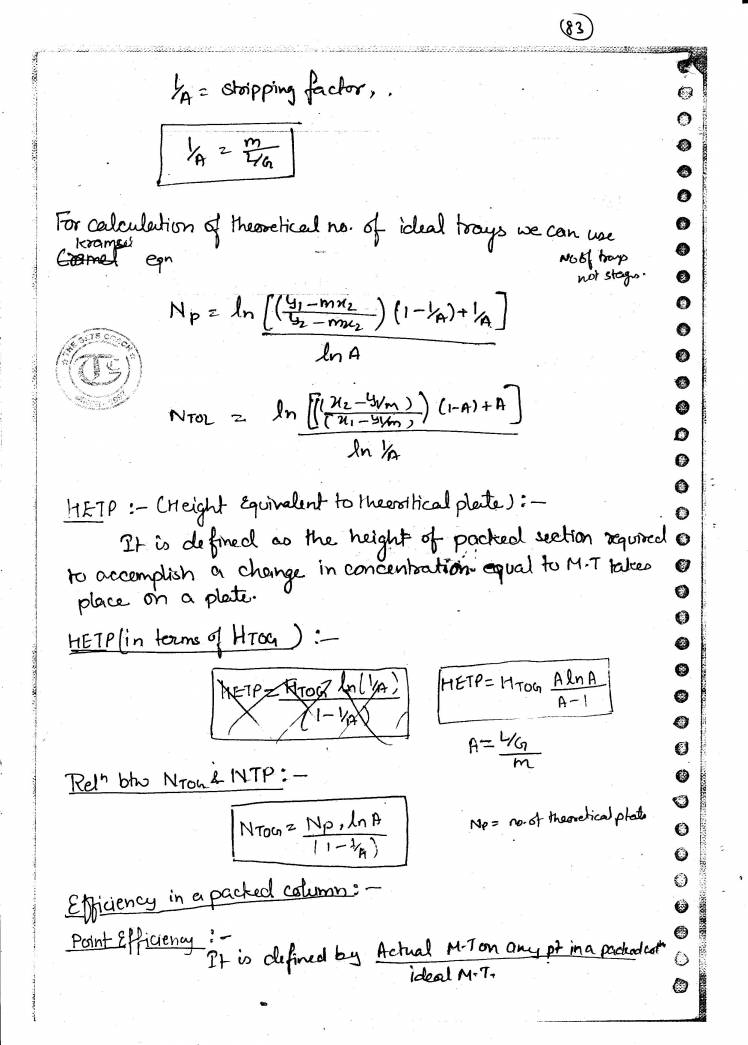 83
1/A = stripping factor, .
1/A = m / L/G
For calculation of theoretical no. of ideal trays we can use
kramser
egn
No of trays
not stages.
Np = ln [((y1 - mx2) / (y2 - mx2)) (1 - 1/A) + 1/A] / ln A
NTOL = ln [((x2 - y1/m) / (x1 - y1/m)) (1-A) + A] / ln 1/A
HETP :- (Height Equivalent to theoritical plate) :-
It is defined as the height of packed section required
to accomplish a change in concentration equal to M.T takes
place on a plate.
HETP (in terms of HTOG) :-
HETP = HTOG ln(1/A) / (1 - 1/A)
HETP = HTOG A ln A / A - 1
A = L/G / m
Reln btw NTOG & NTP :-
NTOG = Np . ln A / (1 - 1/A)
Np = no. of theoretical plate
Efficiency in a packed column :-
Point Efficiency :-
It is defined by Actual M.T on any pt in a packed / ideal M.T.